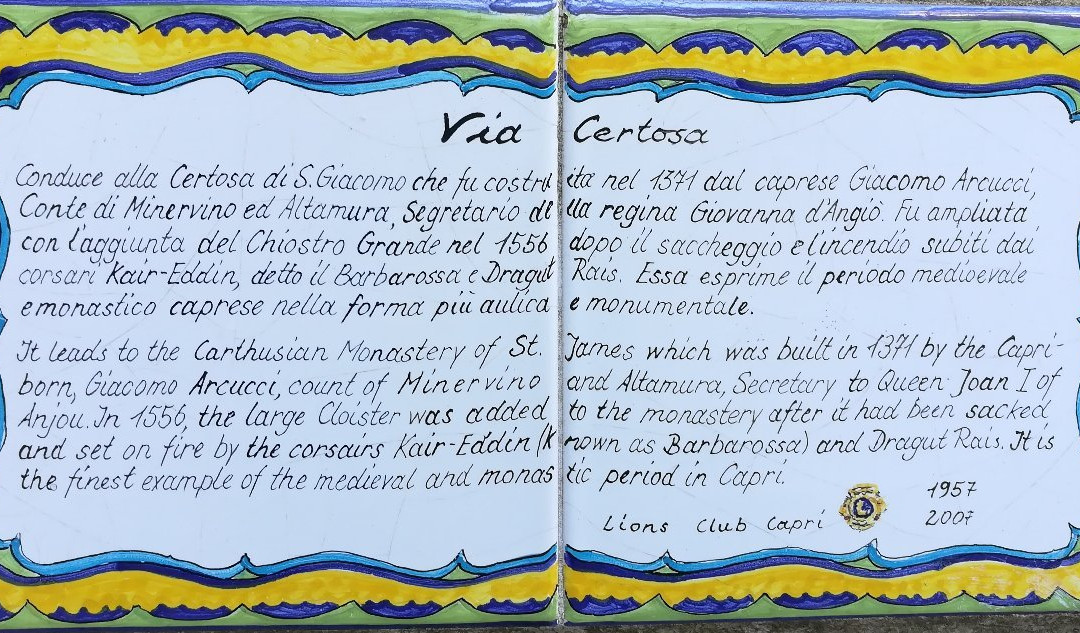 Via Certosa
Conduce alla Certosa di S. Giacomo che fu costruita nel 1371 dal caprese Giacomo Arcucci,
Conte di Minervino ed Altamura, Segretario della regina Giovanna d'Angiò. Fu ampliata
con l'aggiunta del Chiostro Grande nel 1556 dopo il saccheggio e l'incendio subiti dai
corsari Kair-Eddin, detto il Barbarossa e Dragut Rais. Essa esprime il periodo medioevale
e monastico caprese nella forma più aulica e monumentale.
It leads to the Carthusian Monastery of St. James which was built in 1371 by the Capri-
born, Giacomo Arcucci, count of Minervino and Altamura, Secretary to Queen Joan I of
Anjou. In 1556, the large Cloister was added to the monastery after it had been sacked
and set on fire by the corsairs Kair-Eddin (known as Barbarossa) and Dragut Rais. It is
the finest example of the medieval and monastic period in Capri.
Lions Club Capri
1957
2007